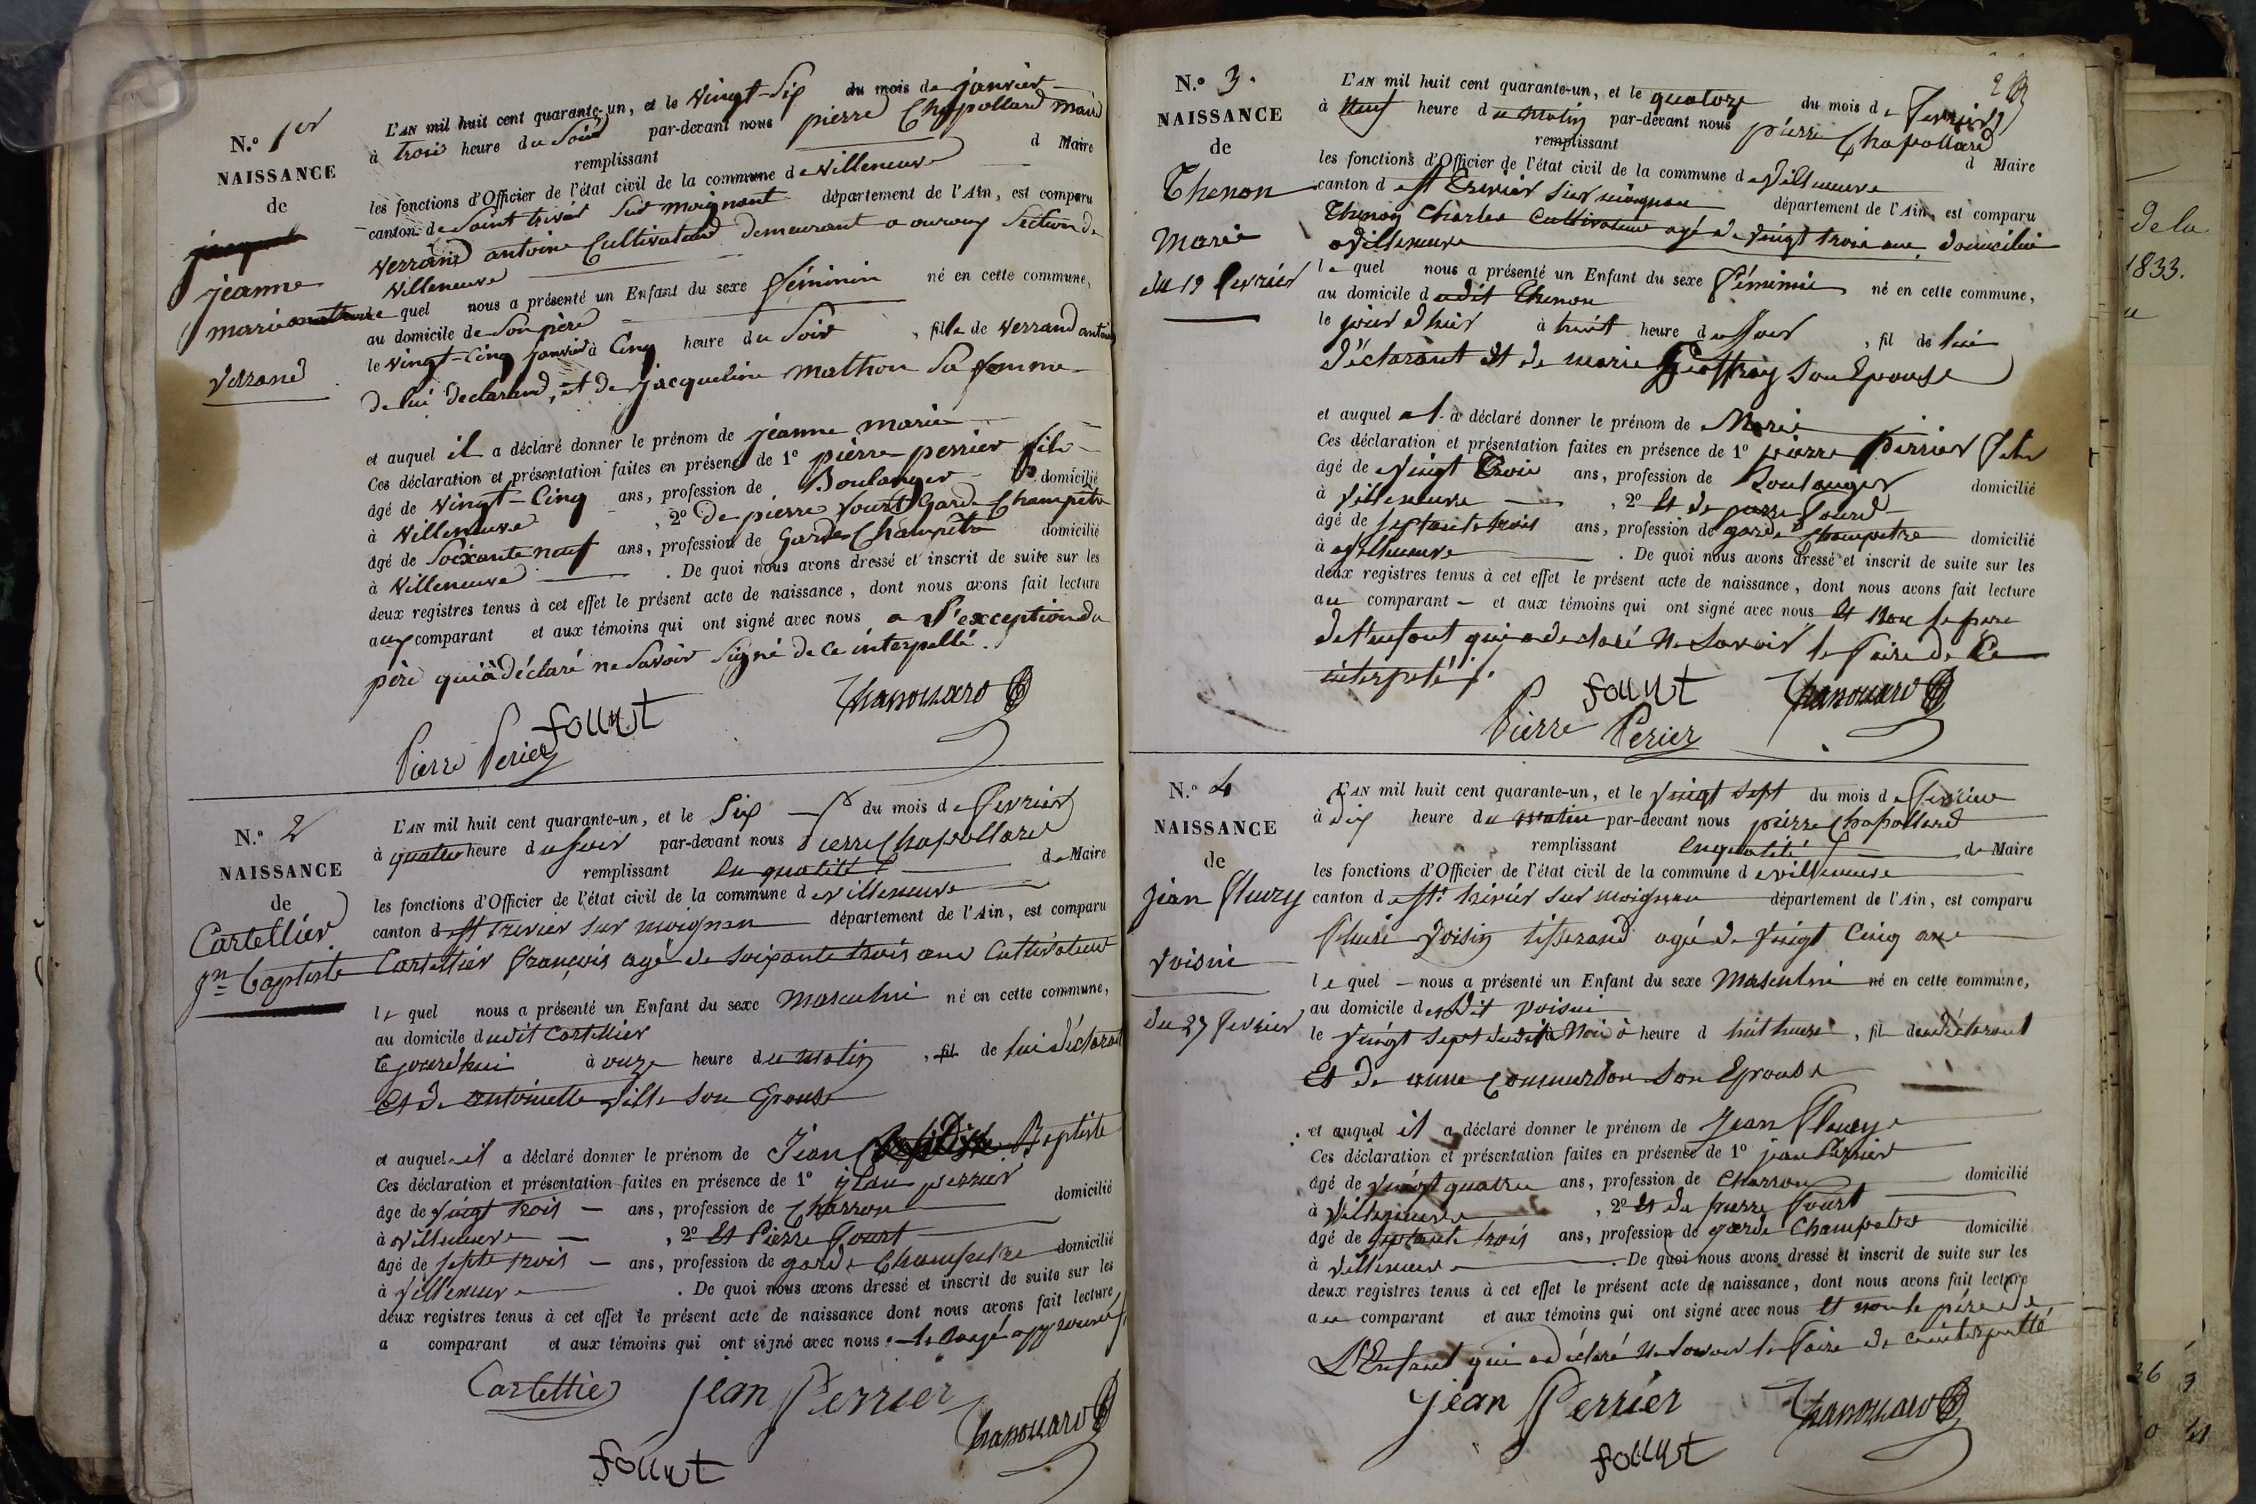 N.° 1er
NAISSANCE
de
jeanne
marie
Verrand
L'AN mil huit cent quarante-un, et le vingt-Six du mois de janvier
à trois heure du Soir par-devant nous pierre Chapollard maire
remplissant d Maire
les fonctions d'Officier de l'état civil de la commune de villeneuve
canton de Saint trivier Sur moignant département de l'Ain, est comparu
verrand antoine Cultivateur demeurant a ouroux Section de
villeneuve
le quel nous a présenté un Enfant du sexe féminin né en cette commune,
au domicile de Son père
le vingt-Cinq janvier à Cinq heure du Soir, fille de verrand antoine
de lui declarand, et de jacqueline mathon Sa femme
et auquel il a déclaré donner le prénom de jeanne marie
Ces déclaration et présentation faites en présence de 1° pierre perrier fils
âgé de vingt-Cinq ans, profession de Boulanger domicilié
à villeneuve, 2° de pierre fourt Garde Champêtre
âgé de Soixante neuf ans, profession de Garde Champêtre domicilié
à villeneuve. De quoi nous avons dressé et inscrit de suite sur les
deux registres tenus à cet effet le présent acte de naissance, dont nous avons fait lecture
aux comparant et aux témoins qui ont signé avec nous a l'exception du
père qui à déclaré ne Savoir Signé de Ce interpellé.
fourt
Pierre Perier
N.° 2
NAISSANCE
de
Cartellier
Jn Baptiste
L'AN mil huit cent quarante-un, et le Six du mois de fevrier
à quatre heure du soir par-devant nous Pierre Chapollard
remplissant en qualité de Maire
les fonctions d'Officier de l'état civil de la commune de villeneuve
canton de st trivier sur moignan département de l'Ain, est comparu
Cartellier françois agé de soixante trois ans Cultivateur
le quel nous a présenté un Enfant du sexe masculin né en cette commune,
au domicile dudit Cartellier
Cejourdhui à onze heure du matin, fil de lui déclarant
Et de antoinette ville son Epouse
et auquel il a déclaré donner le prénom de Jean Baptiste
Ces déclaration et présentation faites en présence de 1° jean perrier
âge de vingt trois ans, profession de Charron domicilié
à villeneuve, 2° Et Pierre fourt
âgé de septe trois ans, profession de garde Champetre domicilié
à villeneuve. De quoi nous avons dressé et inscrit de suite sur les
deux registres tenus à cet effet le présent acte de naissance dont nous avons fait lecture
a comparant et aux témoins qui ont signé avec nous. le Rayé approuvé
Cartellier jean Perrier
fourt
N.° 3.
NAISSANCE
de
Thenon
Marie
du 19 fevrier
L'AN mil huit cent quarante-un, et le quatorze du mois de fevrier
à neuf heure du matin par-devant nous pierre Chapollard
remplissant d Maire
les fonctions d'Officier de l'état civil de la commune de villeneuve
canton de st trivier sur moignan département de l'Ain, est comparu
Thenon Charles Cultivateur agé de vingt trois ans domicilié
a villeneuve
le quel nous a présenté un Enfant du sexe féminin né en cette commune,
au domicile dudit Thenon
le jour d'hier à huit heure du soir, fil de lui
Déclarant Et de marie Geoffray son Epouse
et auquel il a déclaré donner le prénom de Marie
Ces déclaration et présentation faites en présence de 1° pierre perrier fils
âgé de vingt trois ans, profession de Boulanger domicilié
à villeneuve, 2° Et de pierre fourt
âgé de septante trois ans, profession de garde Champetre domicilié
à villeneuve. De quoi nous avons dressé et inscrit de suite sur les
deux registres tenus à cet effet le présent acte de naissance, dont nous avons fait lecture
au comparant et aux témoins qui ont signé avec nous Et non le pere
de l'enfant qui a declaré ne savoir le faire de Ce
interpelé.
fourt
Pierre Perier
N.° 4
NAISSANCE
de
jean fleury
voisin
du 27 fevrier
L'AN mil huit cent quarante-un, et le vingt sept du mois de fevrier
à dix heure du matin par-devant nous pierre Chapollard
remplissant en qualité de Maire
les fonctions d'Officier de l'état civil de la commune de villeneuve
canton de st trivier sur moignan département de l'Ain, est comparu
voisin tisserand agé de vingt Cinq ans
le quel nous a présenté un Enfant du sexe Masculin né en cette commune,
au domicile dudit voisin
le vingt sept dudit Mois à heure d huit heure, fil dudéclarant
Et de anne son Epouse
et auquel il a déclaré donner le prénom de Jean fleury
Ces déclaration et présentation faites en présence de 1° jean Perrier
âgé de vingt quatre ans, profession de Charron domicilié
à villeneuve, 2° Et de pierre fourt
âgé de septante trois ans, profession de garde Champetre domicilié
à villeneuve. De quoi nous avons dressé et inscrit de suite sur les
deux registres tenus à cet effet le présent acte de naissance, dont nous avons fait lecture
au comparant et aux témoins qui ont signé avec nous Et non le père de
L'Enfant qui a déclaré ne savoir le faire de ce interpellé
jean Perrier
fourt
de la
1833.